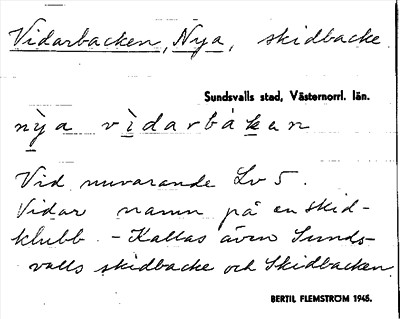 Vidarbacken, Nya, skidbacke.
Sundsvalls stad, Västernorrl. län.
nỳa vìdarbáken
Vid nuvarande Lv 5.
Vidar namn på en skid-
klubb. - Kallas även Sunds-
valls skidbacke och Skidbacken.
BERTIL FLEMSTRÖM 1945.